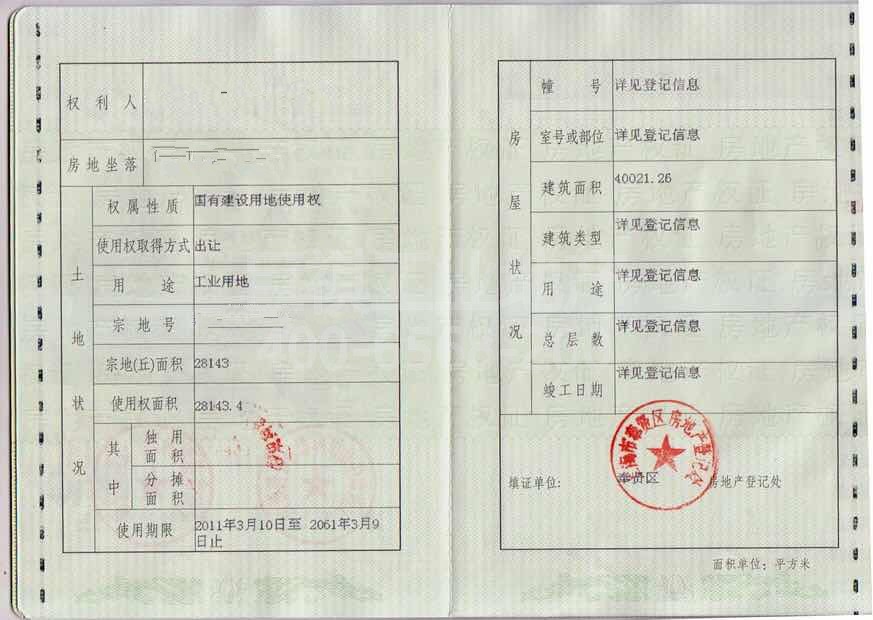 权利人
房地坐落
土地状况
权属性质 国有建设用地使用权
使用权取得方式 出让
用途 工业用地
宗地号
宗地(丘)面积 28143
使用权面积 28143.4
其中
独用面积
分摊面积
使用期限 2011年3月10日至 2061年3月9日止
房屋状况
幢号 详见登记信息
室号或部位 详见登记信息
建筑面积 40021.26
建筑类型 详见登记信息
用途 详见登记信息
总层数 详见登记信息
竣工日期 详见登记信息
上海市奉贤区房地产登记处
填证单位: 奉贤区 房地产登记处
面积单位: 平方米